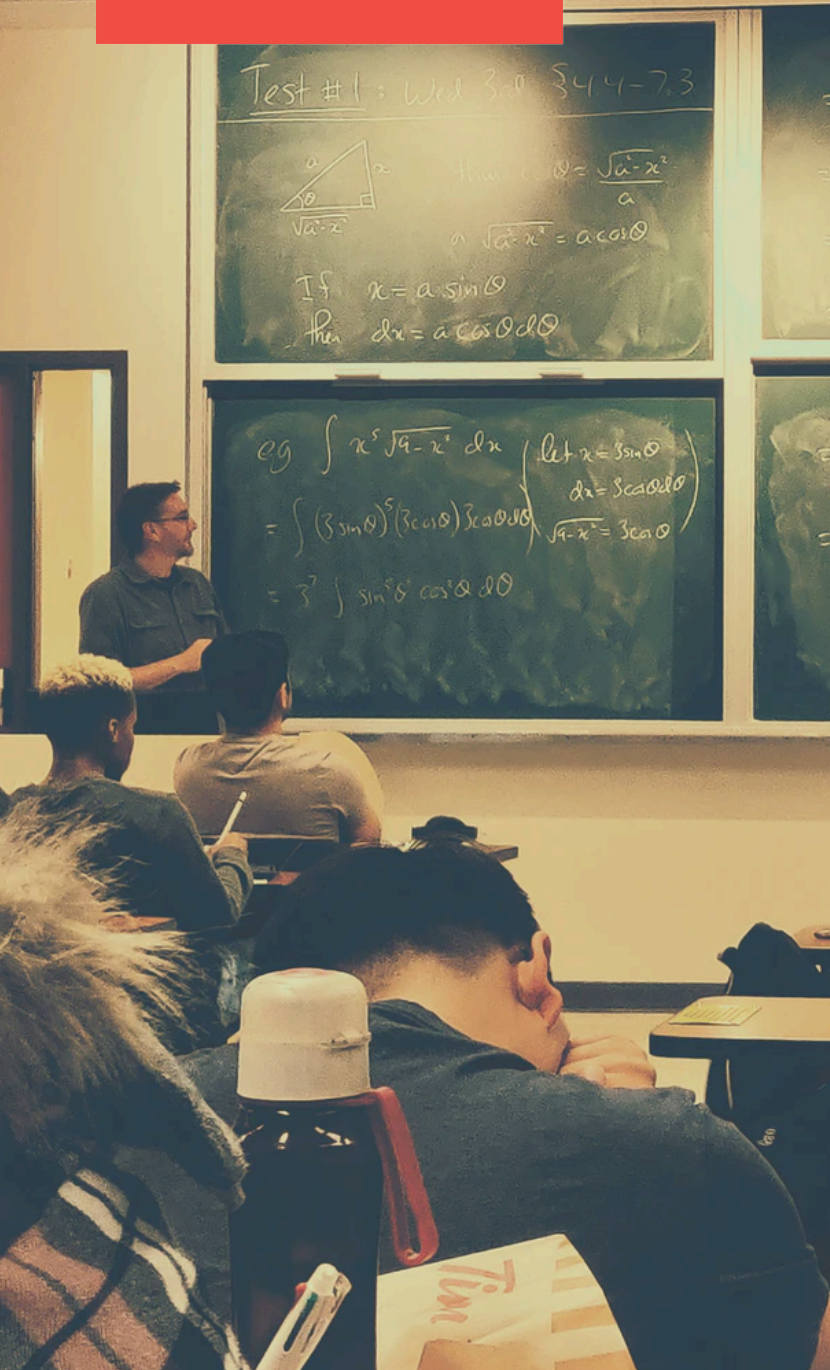 Test #1: Wed 3rd §4.4-7.3
a
x
θ
√a²-x²
θ = √a²-x² / a
√a²-x² = a cos θ
If x = a sin θ
then dx = a cos θ dθ
eg ∫ x⁵ √9-x² dx (let x = 3 sin θ
dx = 3 cos θ dθ
= ∫ (3 sin θ)⁵ (3 cos θ) 3 cos θ dθ
√9-x² = 3 cos θ)
= 3⁷ ∫ sin⁵ θ cos² θ dθ
Tim